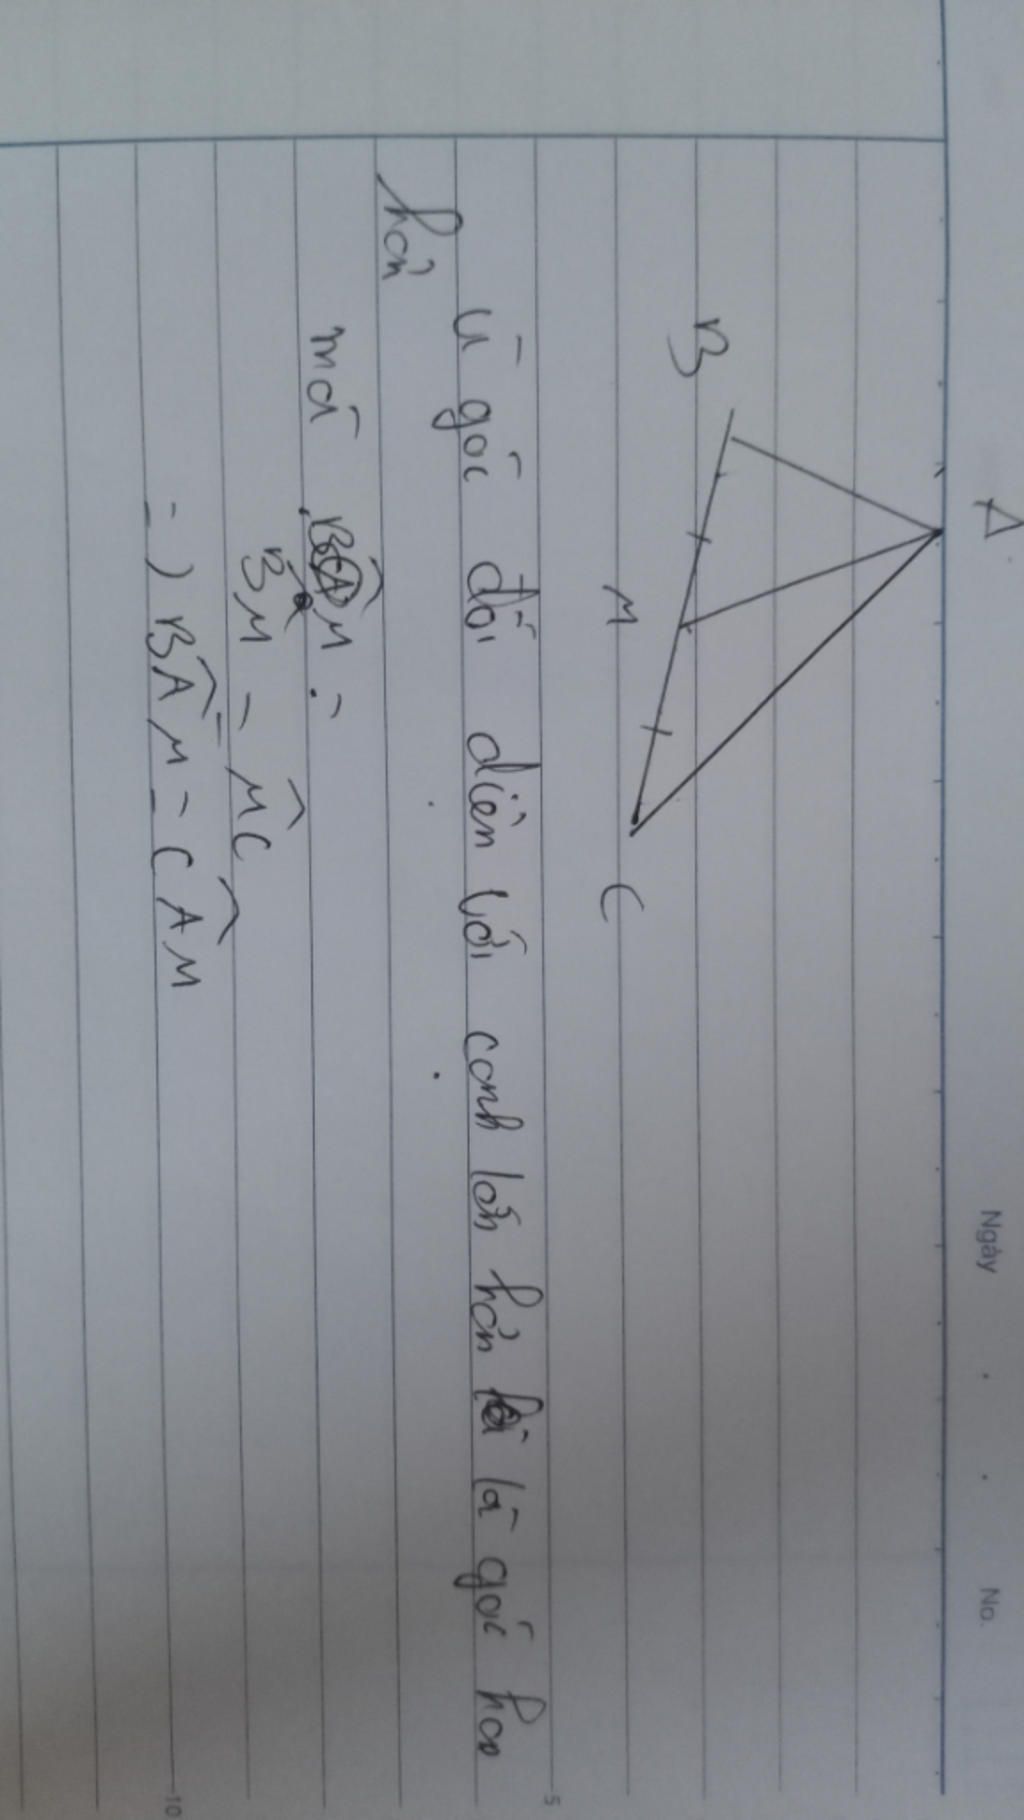 Ngày . . No.
A
B
M
C
Vì góc đối diện với cạnh lớn hơn là góc
hơn
5
mà
BM = MC
=) BÂM = CÂM
10